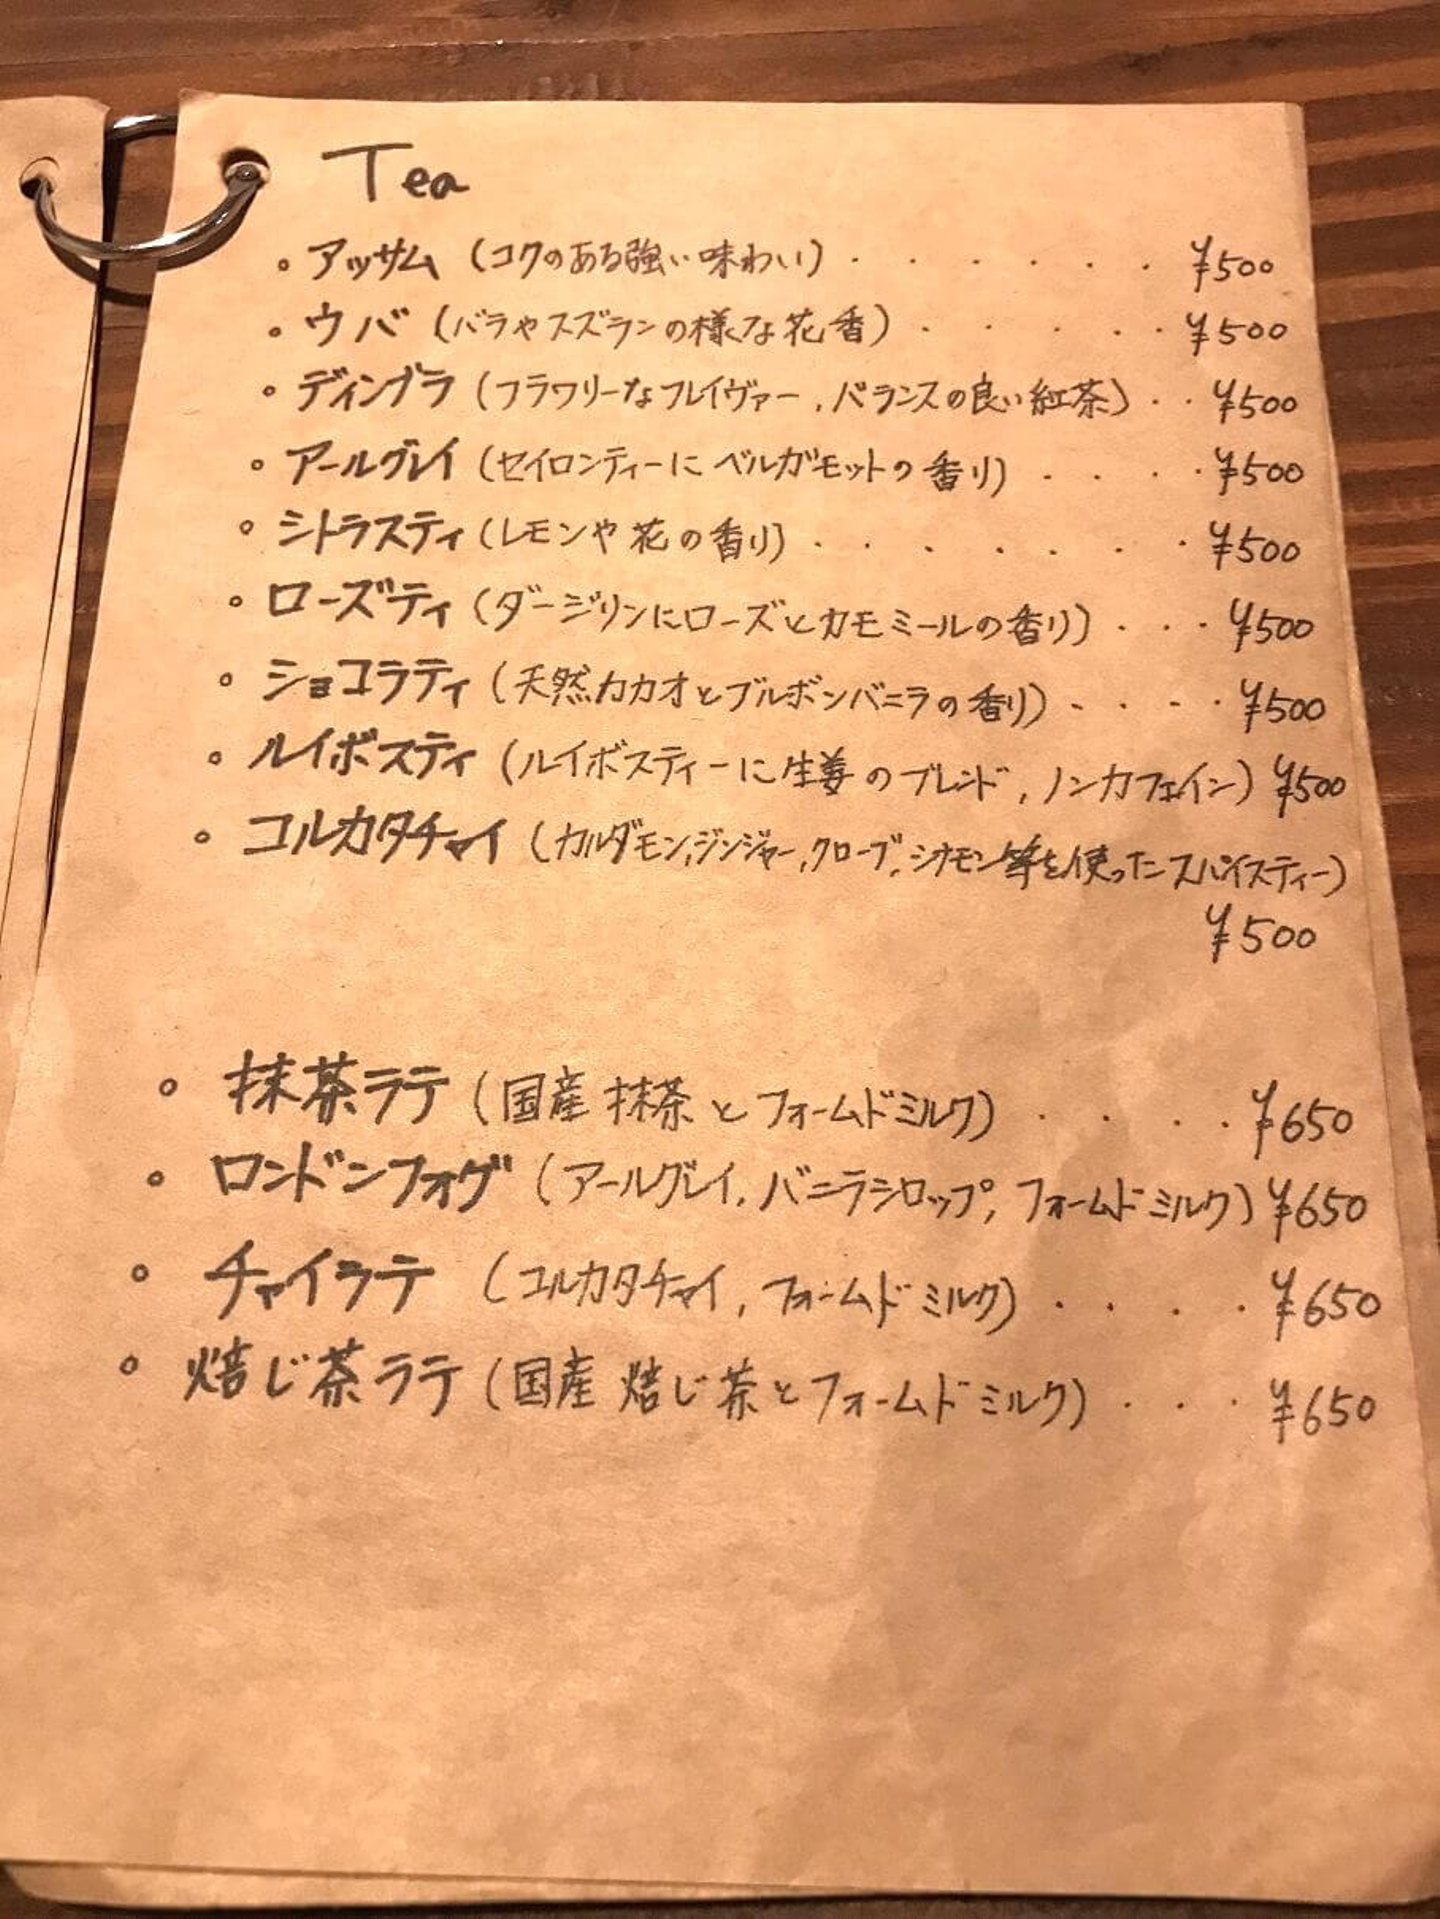 Tea
。アッサム (コクのある強い味わい) ・・・・・・・ ¥500
。ウバ (バラやスズランの様な花香) ・・・・・ ¥500
。ディンブラ (フラワリーなフレイヴァー, バランスの良い紅茶) ・・ ¥500
。アールグレイ (セイロンティーにベルガモットの香り) ・・・・ ¥500
。シトラスティ (レモンや花の香り) ・・・・・・・・ ¥500
。ローズティ (ダージリンにローズとカモミールの香り) ・・・ ¥500
。ショコラティ (天然カカオとブルボンバニラの香り) ・・・・ ¥500
。ルイボスティ (ルイボスティーに生姜のブレンド, ノンカフェイン) ¥500
。コルカタチャイ (カルダモン,ジンジャー,クローブ,シナモン等を使ったスパイスティー)
¥500
。抹茶ラテ (国産抹茶とフォームドミルク) ・・・・ ¥650
。ロンドンフォグ (アールグレイ, バニラシロップ, フォームドミルク) ¥650
。チャイラテ (コルカタチャイ, フォームドミルク) ・・・・ ¥650
。焙じ茶ラテ (国産 焙じ茶とフォームドミルク) ・・・ ¥650